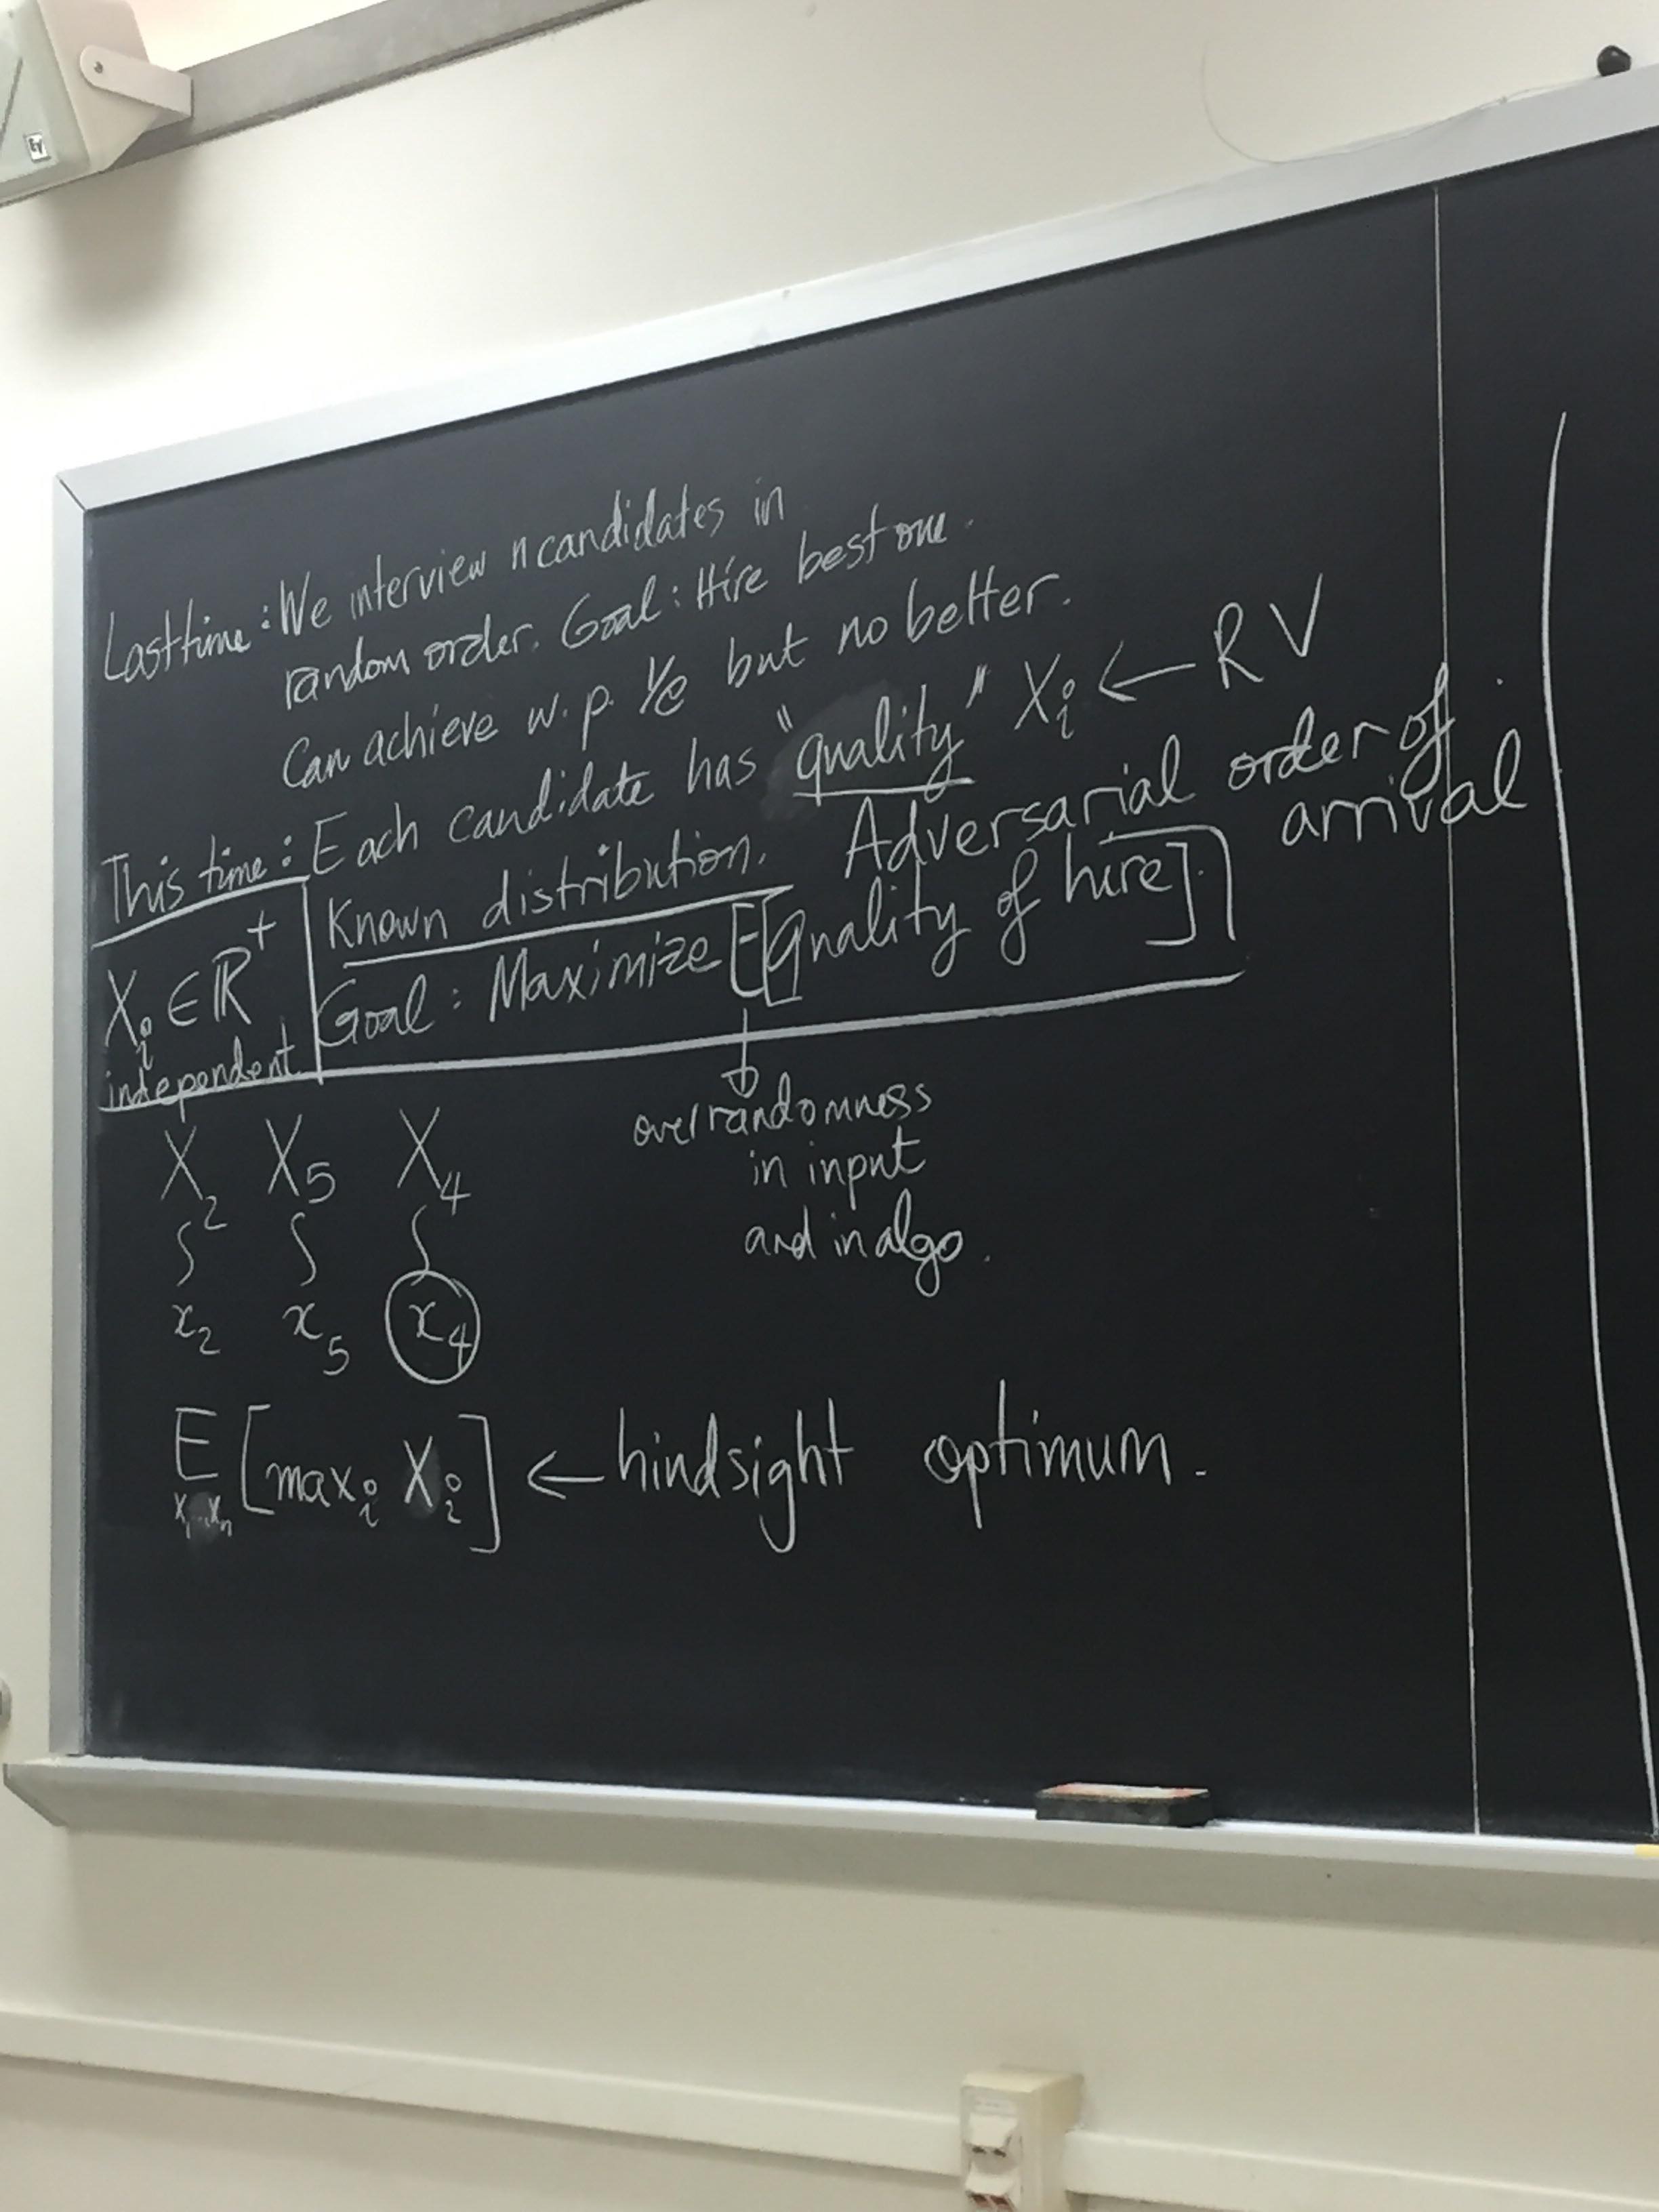 Last time: We interview n candidates in
random order. Goal: Hire best one.
Can achieve w.p. 1/e but no better.
This time: Each candidate has "quality" Xi ← RV
Known distribution. Adversarial order of
arrival
Xi ∈ ℝ+
independent
Goal: Maximize E[Quality of hire].
over randomness
in input
and in algo.
X2 X5 X4
x2 x5 x4
E [maxi Xi] ← hindsight optimum.
X1...Xn
EV